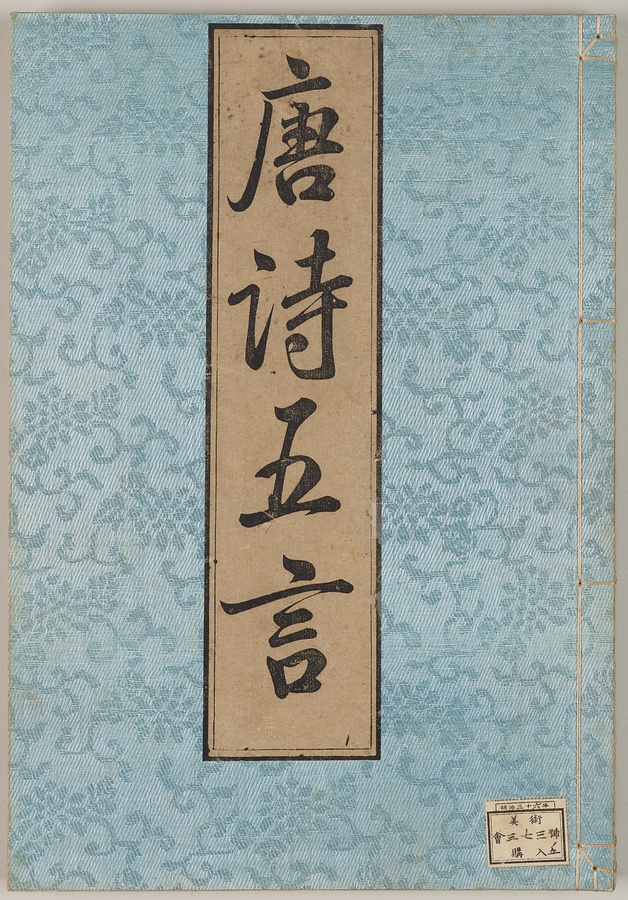 唐詩五言
明治三十六年
美術
會三七三號
購入
五